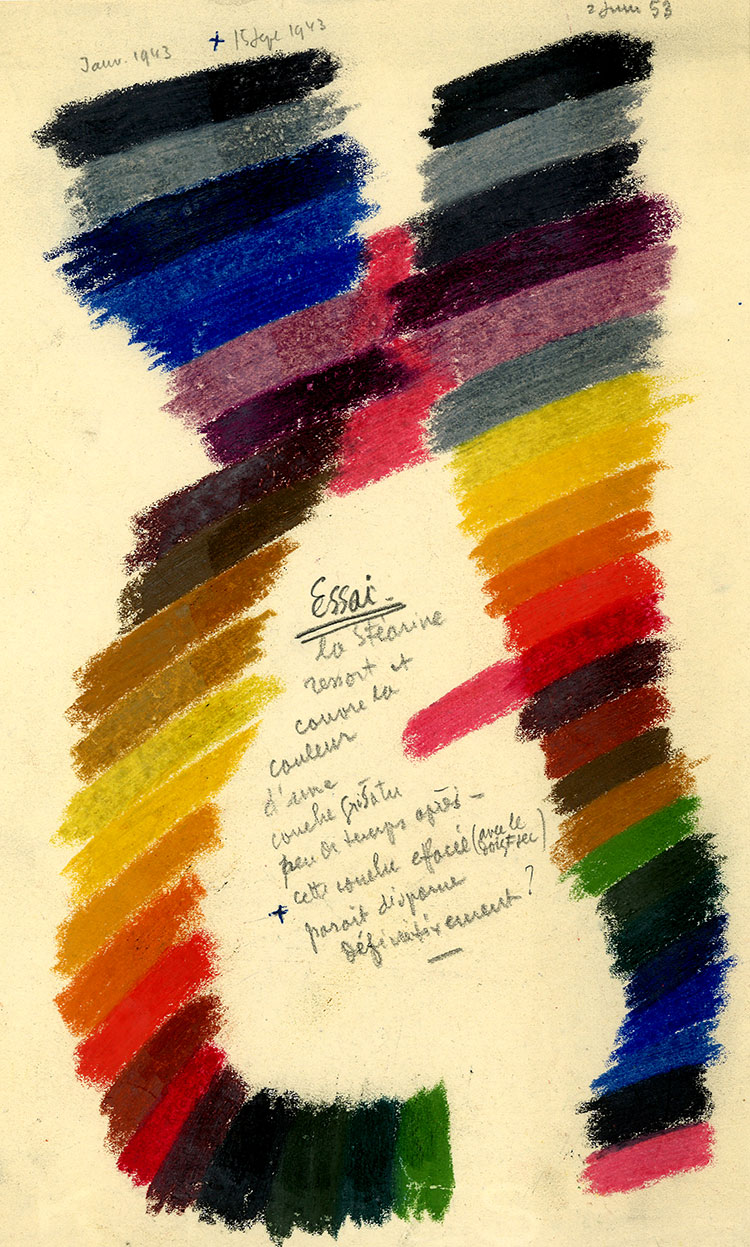 Janv. 1943
+ 15 Sept 1943
2 Juin 53
Essai -
la Stéarine
ressort et
couvre la
couleur
d'une
couche grisatre
peu de temps après -
cette couche effacée (avec le
doigt sec)
+ parait disparue
définitivement ?